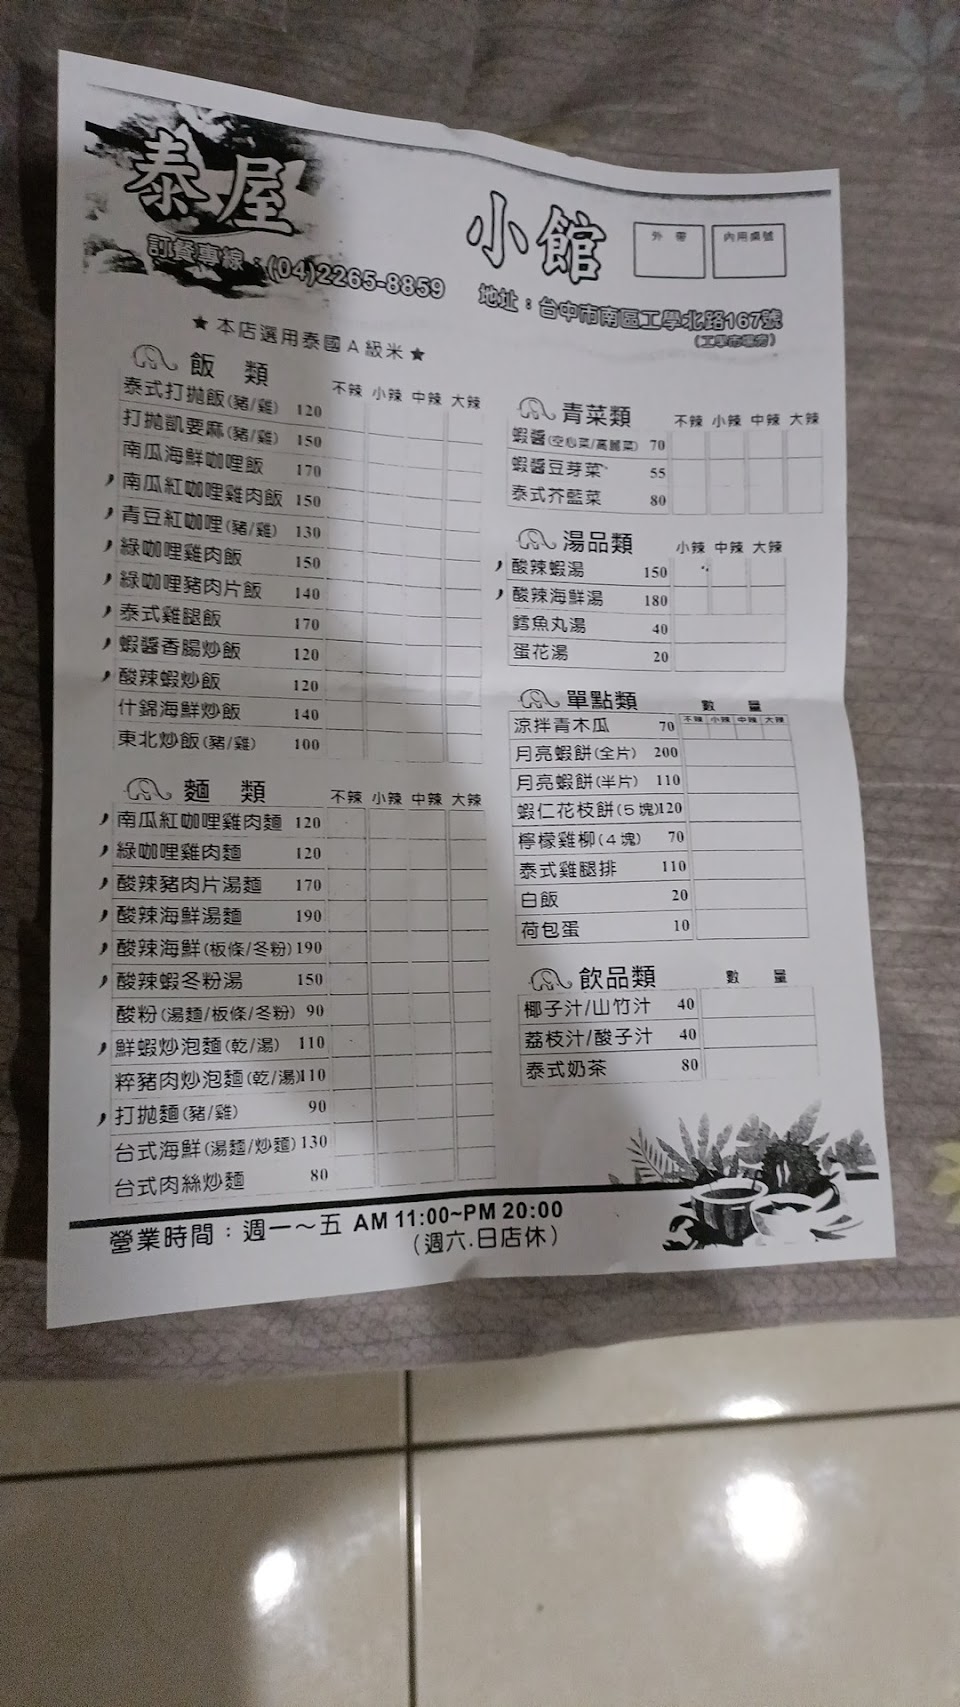 泰屋 小館
外帶
內用桌號
訂餐專線：(04)2265-8859
地址：台中市南區工學北路167號
(工學市場旁)
★本店選用泰國A級米★
飯類 不辣 小辣 中辣 大辣
泰式打拋飯(豬/雞) 120
打拋凱耍麻(豬/雞) 150
南瓜海鮮咖哩飯 170
，南瓜紅咖哩雞肉飯 150
，青豆紅咖哩(豬/雞) 130
，綠咖哩雞肉飯 150
，綠咖哩豬肉片飯 140
，泰式雞腿飯 170
，蝦醬香腸炒飯 120
，酸辣蝦炒飯 120
什錦海鮮炒飯 140
東北炒飯(豬/雞) 100
麵類 不辣 小辣 中辣 大辣
，南瓜紅咖哩雞肉麵 120
，綠咖哩雞肉麵 120
，酸辣豬肉片湯麵 170
，酸辣海鮮湯麵 190
，酸辣海鮮(板條/冬粉) 190
，酸辣蝦冬粉湯 150
酸粉(湯麵/板條/冬粉) 90
，鮮蝦炒泡麵(乾/湯) 110
粹豬肉炒泡麵(乾/湯) 110
，打拋麵(豬/雞) 90
台式海鮮(湯麵/炒麵) 130
台式肉絲炒麵 80
青菜類 不辣 小辣 中辣 大辣
蝦醬(空心菜/高麗菜) 70
蝦醬豆芽菜 55
泰式芥藍菜 80
湯品類 小辣 中辣 大辣
，酸辣蝦湯 150
，酸辣海鮮湯 180
鱈魚丸湯 40
蛋花湯 20
單點類 數量
涼拌青木瓜 70 不辣 小辣 中辣 大辣
月亮蝦餅(全片) 200
月亮蝦餅(半片) 110
蝦仁花枝餅(5塊) 120
檸檬雞柳(4塊) 70
泰式雞腿排 110
白飯 20
荷包蛋 10
飲品類 數量
椰子汁/山竹汁 40
荔枝汁/酸子汁 40
泰式奶茶 80
營業時間：週一～五 AM 11:00~PM 20:00
(週六.日店休)